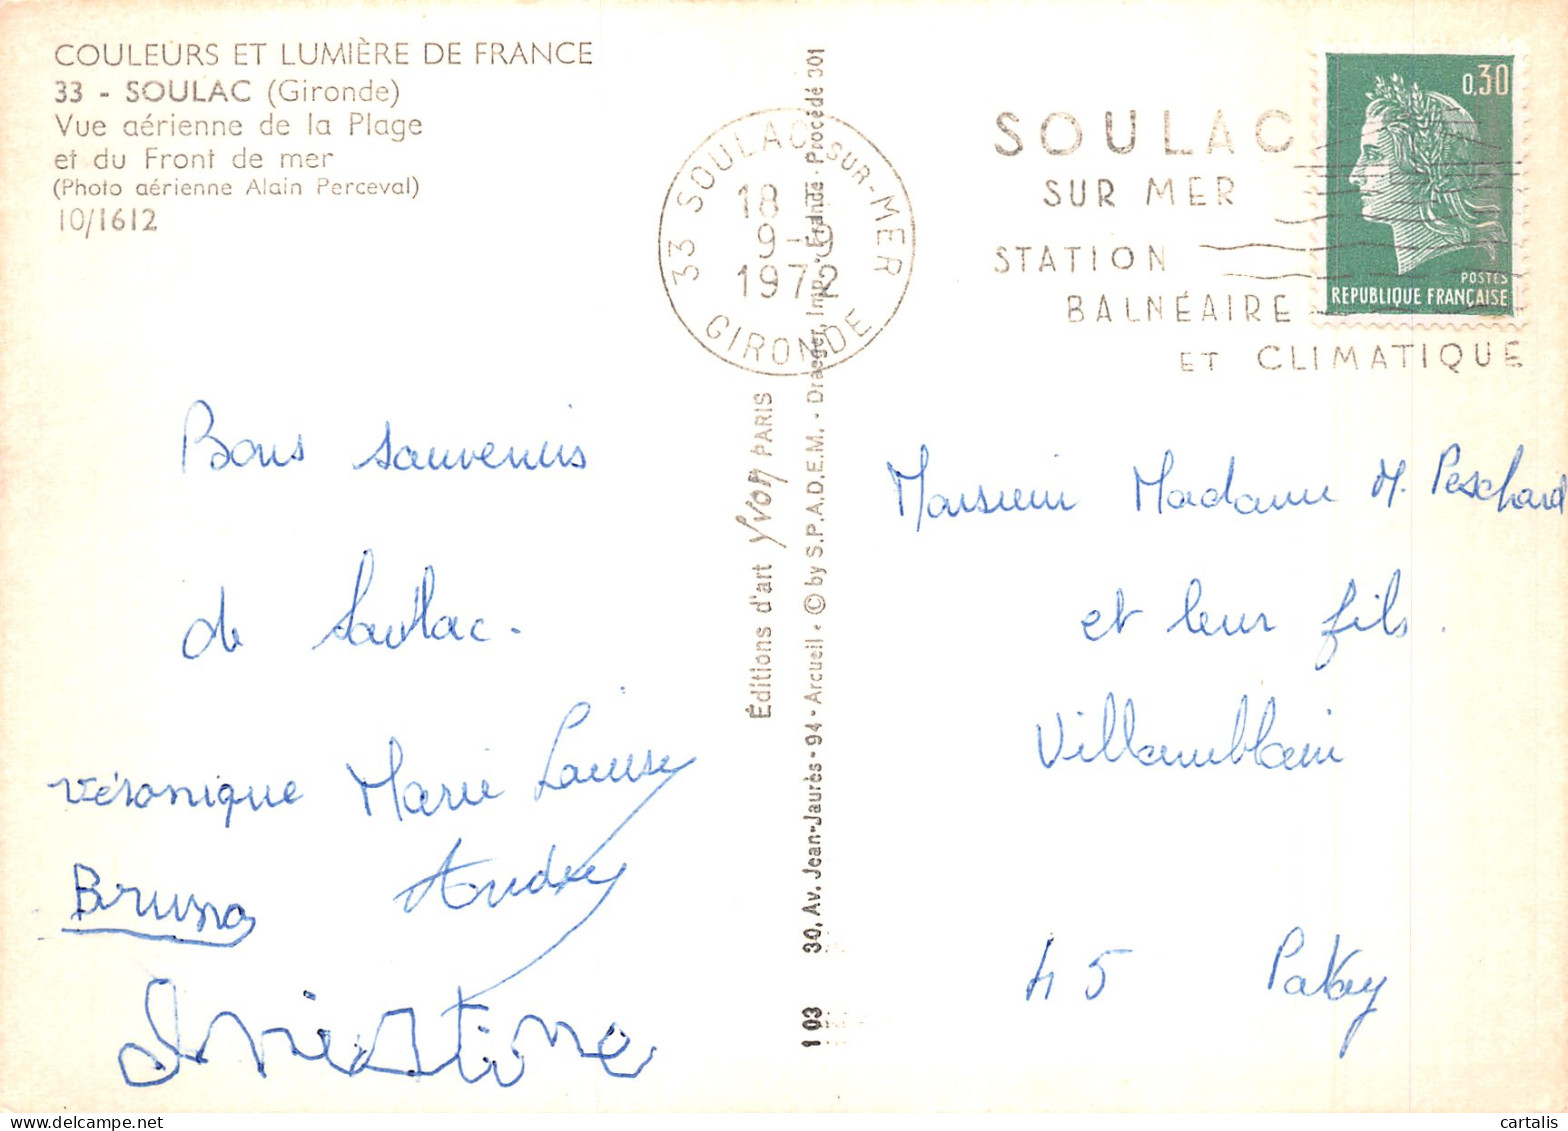 COULEURS ET LUMIÈRE DE FRANCE
33 - SOULAC (Gironde)
Vue aérienne de la Plage
et du Front de mer
(Photo aérienne Alain Perceval)
10/1612
33 SOULAC-SUR-MER
18 H
9-9
1972
GIRONDE
SOULAC
SUR MER
STATION
BALNÉAIRE
ET CLIMATIQUE
0,30
POSTES
REPUBLIQUE FRANÇAISE
Bons souvenirs
de Soulac.
Véronique Marie Louise
Bruno Andrey
Christine
Éditions d'art Yvon PARIS
103 30, Av. Jean-Jaurès - 94 - Arcueil • © by S.P.A.D.E.M. - Draeger, Imp. - France - Procédé 301
Monsieur Madame M. Peschard
et leur fils.
Villamblain
45 Patay
cartalis